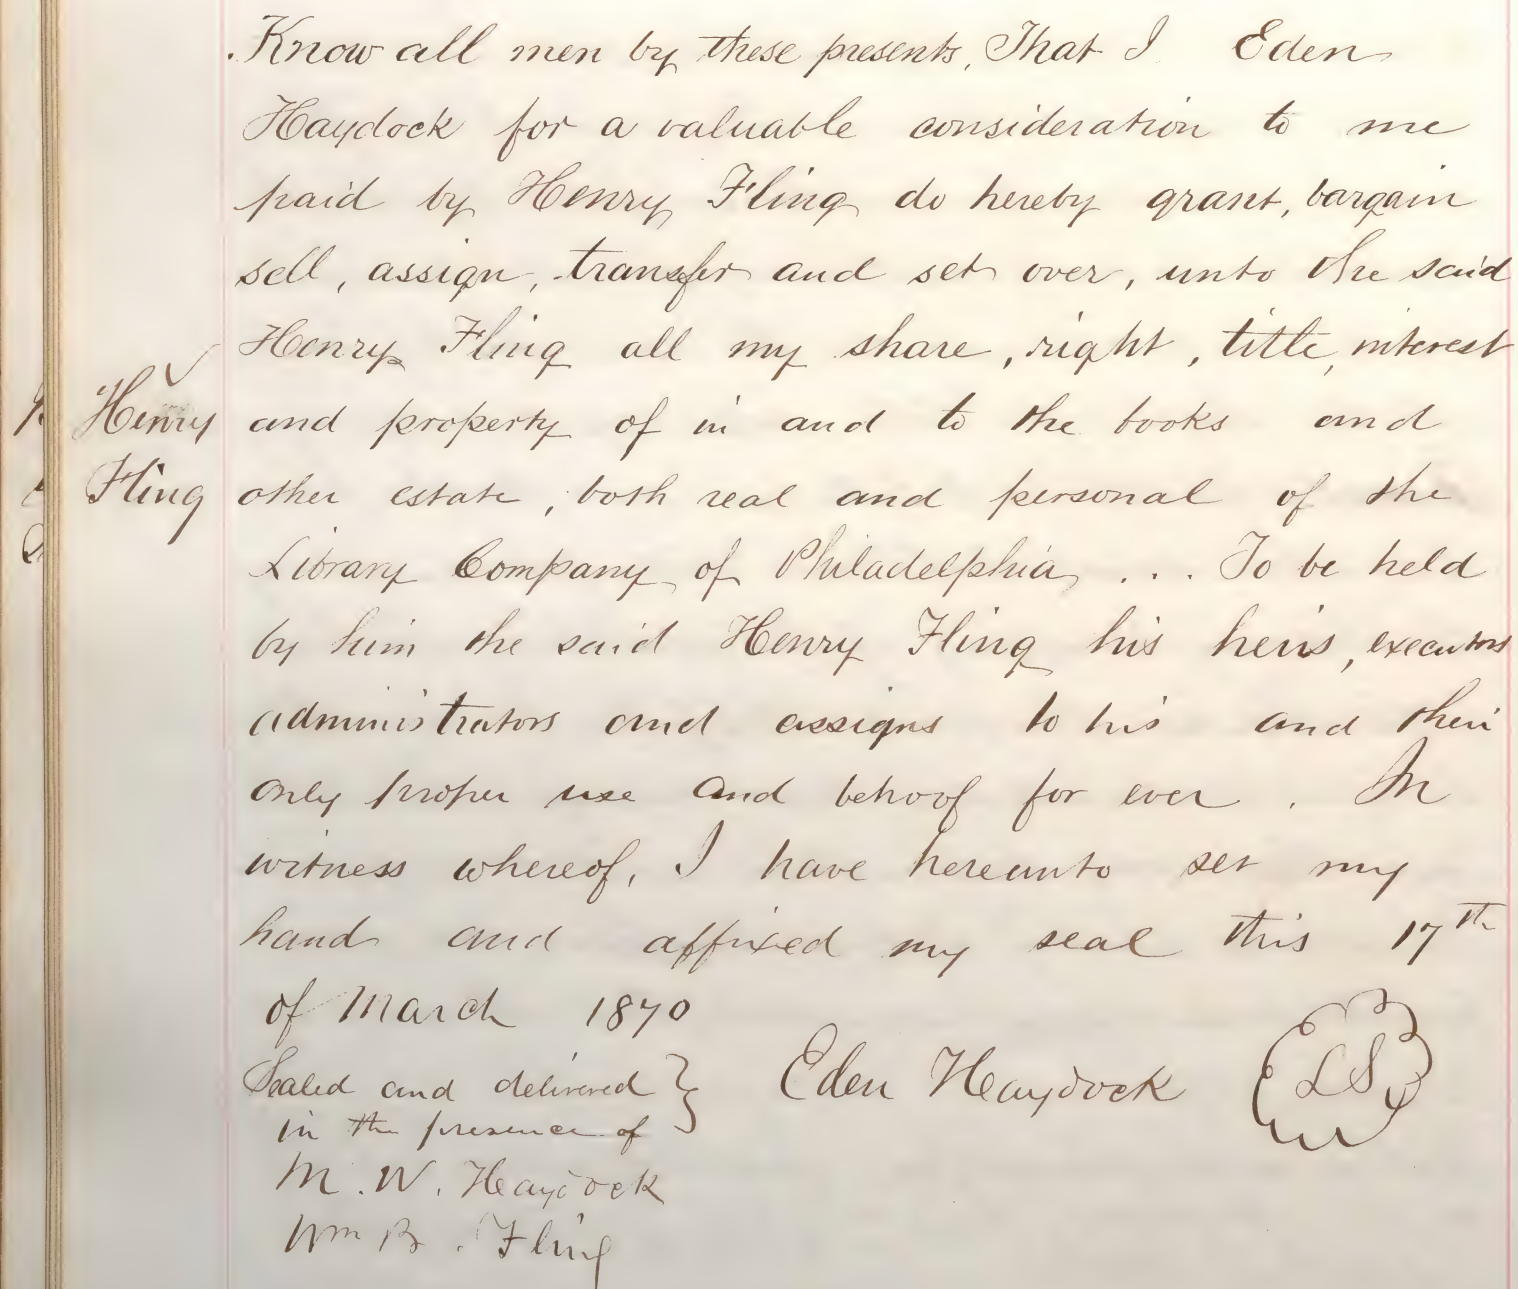 Know all men by these presents, That I Eden
Haydock for a valuable consideration to me
paid by Henry Fling do hereby grant, bargain
sell, assign, transfer and set over, unto the said
Henry Fling all my share, right, title, interest
Henry
and property of in and to the books and
Fling
other estate, both real and personal of the
Library Company of Philadelphia, ... To be held
by him the said Henry Fling his heirs, executors
administrators and assigns to his and their
only proper use and behoof for ever. In
witness whereof, I have hereunto set my
hand and affixed my seal this 17th
of March 1870
Sealed and delivered }
in the presence of
Eden Haydock LS
M. W. Haydock
Wm B. Fling